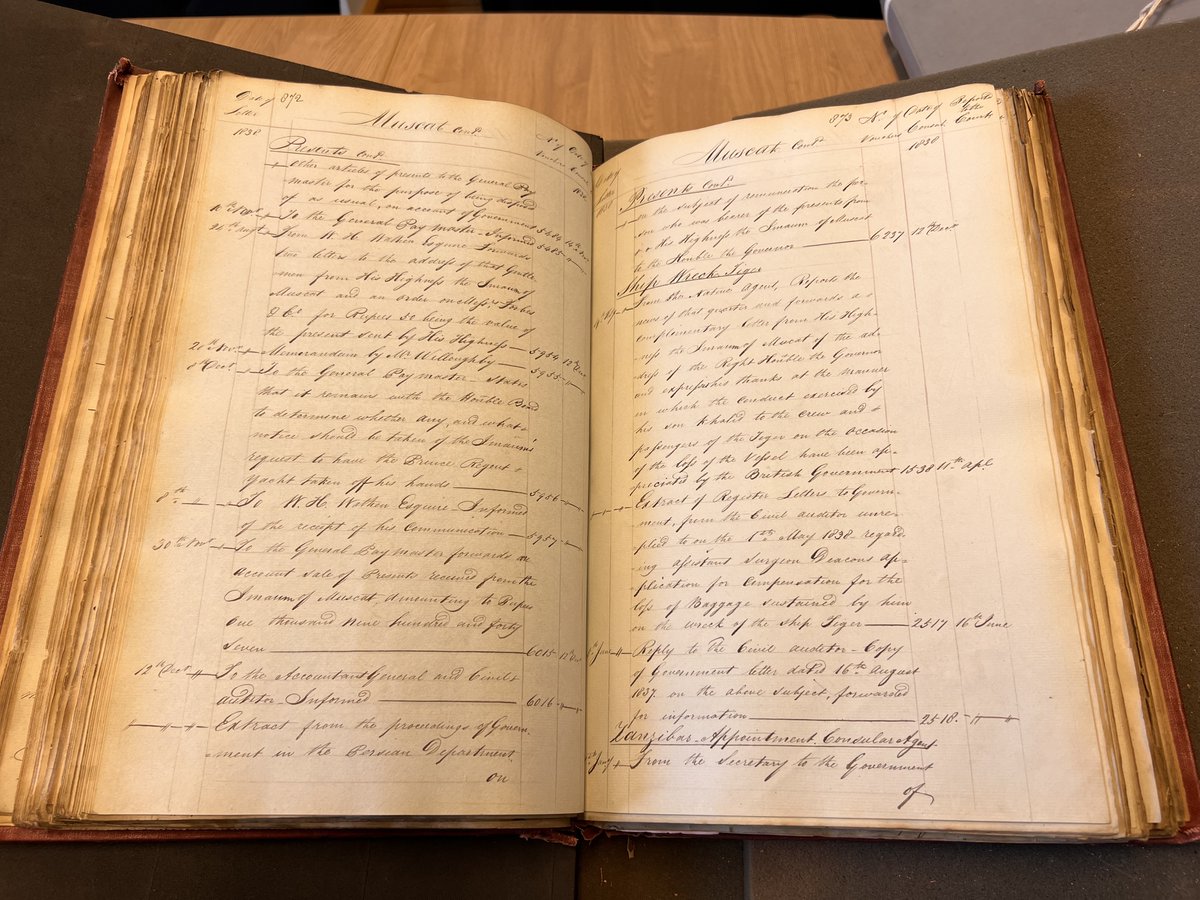 Date of
Letter
872
Muscat Contd.
No. of
Vouchers
Date of
Consn.
1838
1838
Presents Contd.
Other articles of presents to the General Pay
master for the purpose of being disposed
of as usual, on account of Government 5484 14th
To the General Pay master - Informed 5485 "
From W. H. Wathen Esquire Forwards
two letters to the address of that Gentle
men from His Highness the Imaum of
Muscat and an order on Messrs. Forbes
& Co. for Rupees being the value of
the present sent by His Highness 5954 12th Decr
20th Novr. Memorandum by Mr Willoughby 5955 "
8th Decr. To the General Pay master - States
that it remains with the Honble Board
to determine whether any, and what
notice should be taken of the Imaum's
request to have the Prince Regent
Yacht taken off his hands 5956 "
8th " To W. H. Wathen Esquire Informed
of the receipt of his Communication 5957 "
30th Novr. To the General Pay master forwards an
account sale of Presents received from the
Imaum of Muscat, amounting to Rupees
One thousand nine hundred and forty
Seven 6015 12th Decr
12th Decr. " To the Accountant General and Civil
auditor - Informed 6016 "
" " " Extract from the proceedings of Govern
=ment in the Persian Department
on
873
Muscat Contd.
No. of
Vouchers
Date of
Consn.
1838
Presents Contd.
on the subject of remuneration the per-
sone who was bearer of the presents from
His Highness the Imaum of Muscat
to the Honble the Governor 6237 12th Decr
Ship Wreck Tiger
From the Native Agent, Reports the
news of that quarter and forwards a
complimentary letter from His High-
ness the Imaum of Muscat to the ad-
dress of the Right Honble the Governor
and expresses his thanks at the manner
in which the conduct exercised by
his son Khaled to the crew and
passengers of the Tiger on the occasion
of the loss of the Vessel have been ap-
preciated by the British Government 1538 11th Apl.
Extract of Register Letters to Govern-
ment, from the Civil auditor unre-
plied to on the 1st May 1838 regard-
ing assistant Surgeon Deacons ap-
plication for Compensation for the
loss of Baggage sustained by him
on the wreck of the ship Tiger 2517 16th June
June " Reply to the Civil auditor - Copy
of Government letter dated 16th August
1837 on the above subject, forwarded
for information 2518 " "
Zanzibar - Appointment Consular Agent
From the Secretary to the Government
of